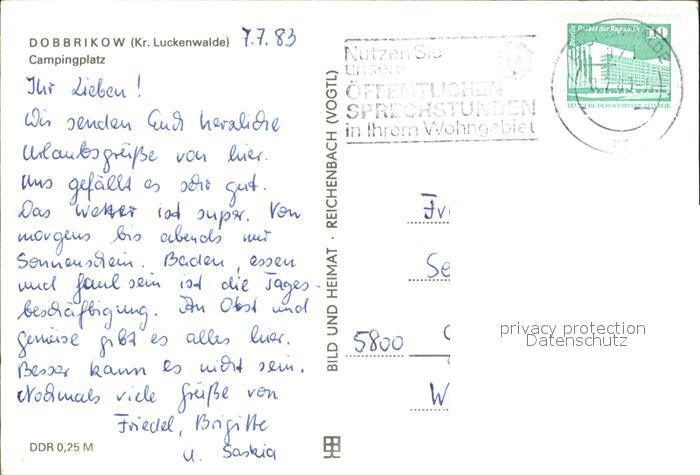 DOBBRIKOW (Kr. Luckenwalde)
Campingplatz
7.7.83
Ihr Lieben!
Wir senden Euch herzliche
Urlaubsgrüße von hier.
Uns gefällt es sehr gut.
Das Wetter ist super. Von
morgens bis abends nur
Sonnenschein. Baden, essen
und faul sein ist die Tages-
beschäftigung. An Obst und
gemüse gibt es alles hier.
Besser kann es nicht sein.
Nochmals viele Grüße von
Friedel, Brigitte
u. Saskia
DDR 0,25 M
BILD UND HEIMAT · REICHENBACH (VOGTL)
Nutzen Sie
unsere
ÖFFENTLICHEN
SPRECHSTUNDEN
in Ihrem Wohngebiet
Berlin, Palast der Republik 10
DEUTSCHE DEMOKRATISCHE REPUBLIK
5800
privacy protection
Datenschutz